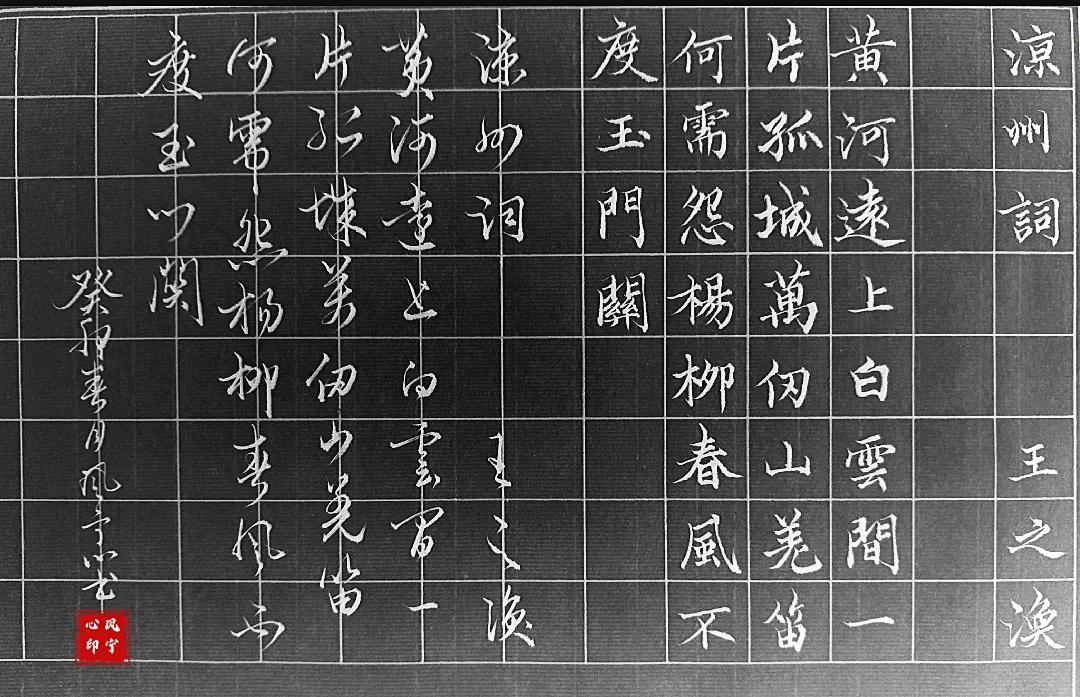 涼州詞 王之渙
黃河遠上白雲間一
片孤城萬仞山羌笛
何需怨楊柳春風不
度玉門關
涼州詞 王之渙
黃河遠上白雲間一
片孤城萬仞山羌笛
何需怨楊柳春風不
度玉门関
癸卯春月風宁書
风宁
心印